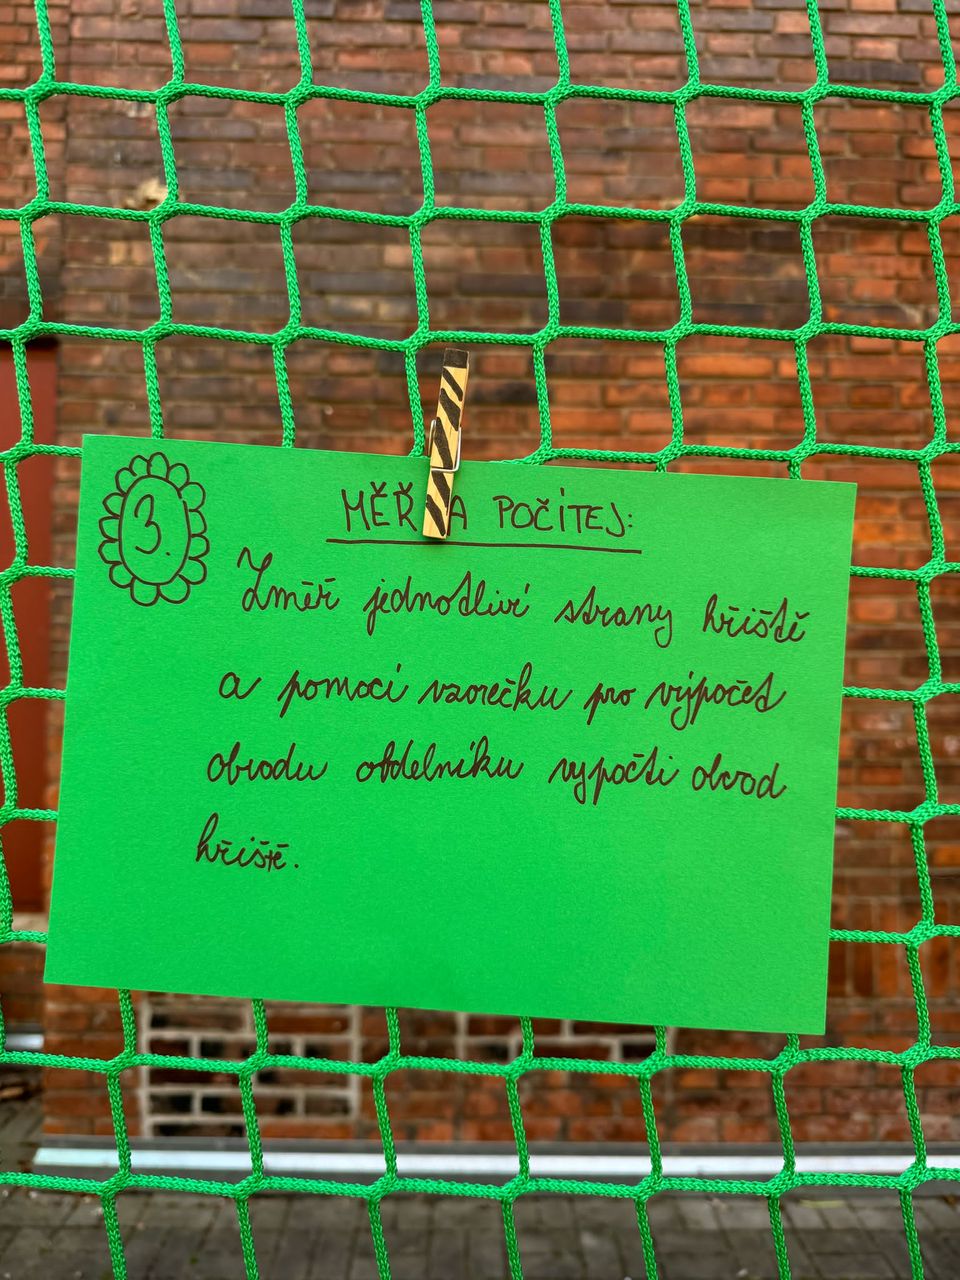 3.
MĚŘ A POČÍTEJ:
Změř jednotlivé strany hřiště
a pomocí vzorečku pro výpočet
obvodu obdelníku vypočti obvod
hřiště.